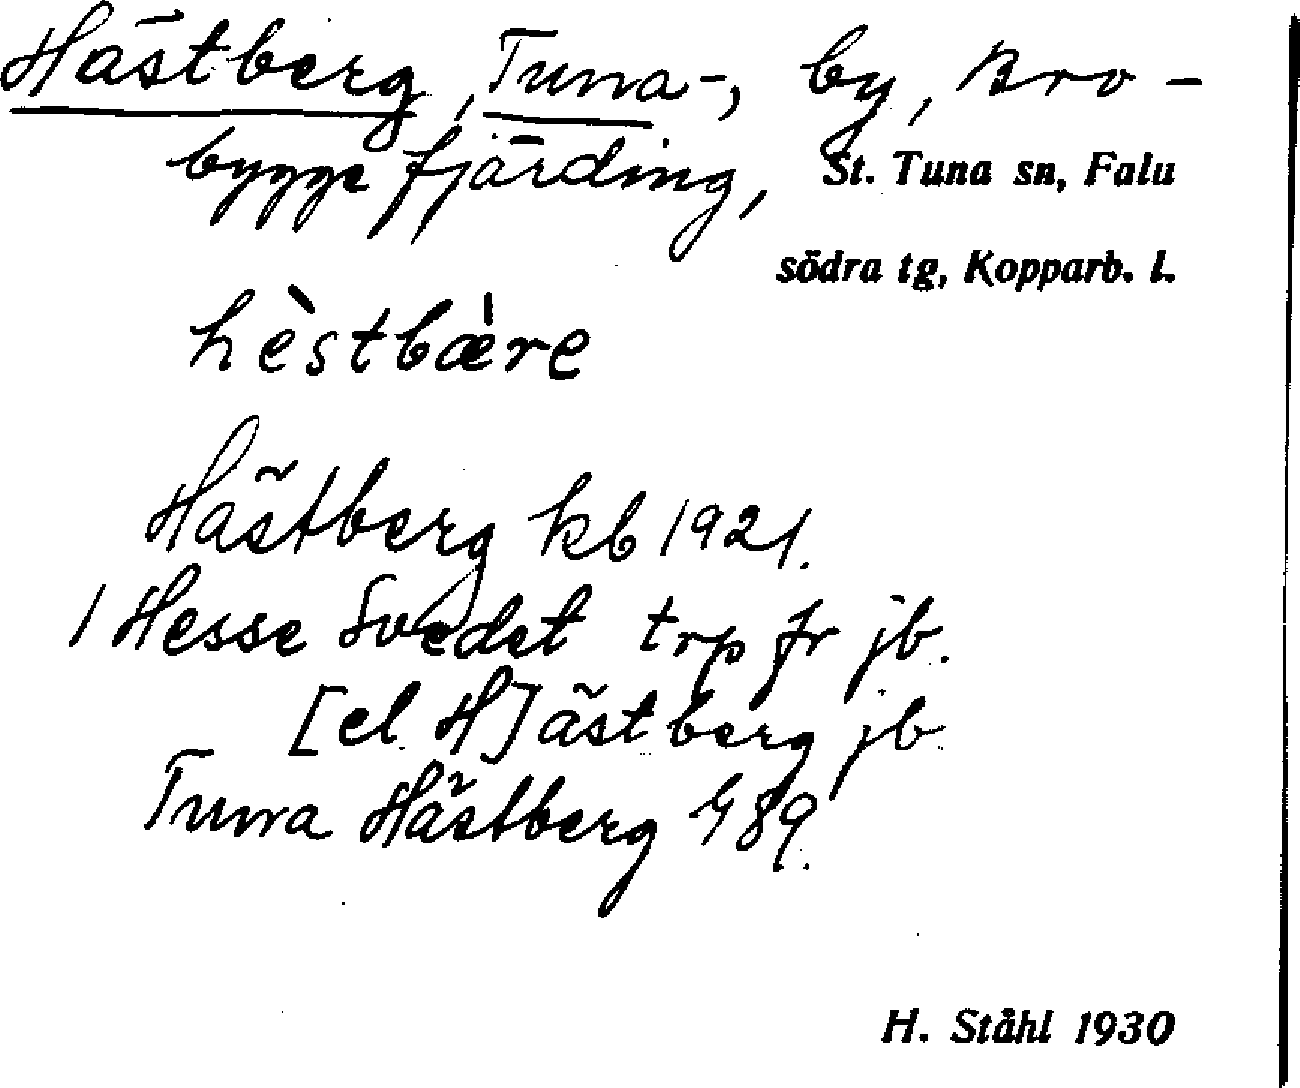 Hästberg, Tuna-, by, Bro-
bygge fjärding, St. Tuna sn, Falu
södra tg, Kopparb. l.
hèstbæ̀re
Hästberg kb 1921.
1 Hesse Svedet trp fr jb.
[el H]ästberg jb
Tuna Hästberg G 89.
H. Ståhl 1930